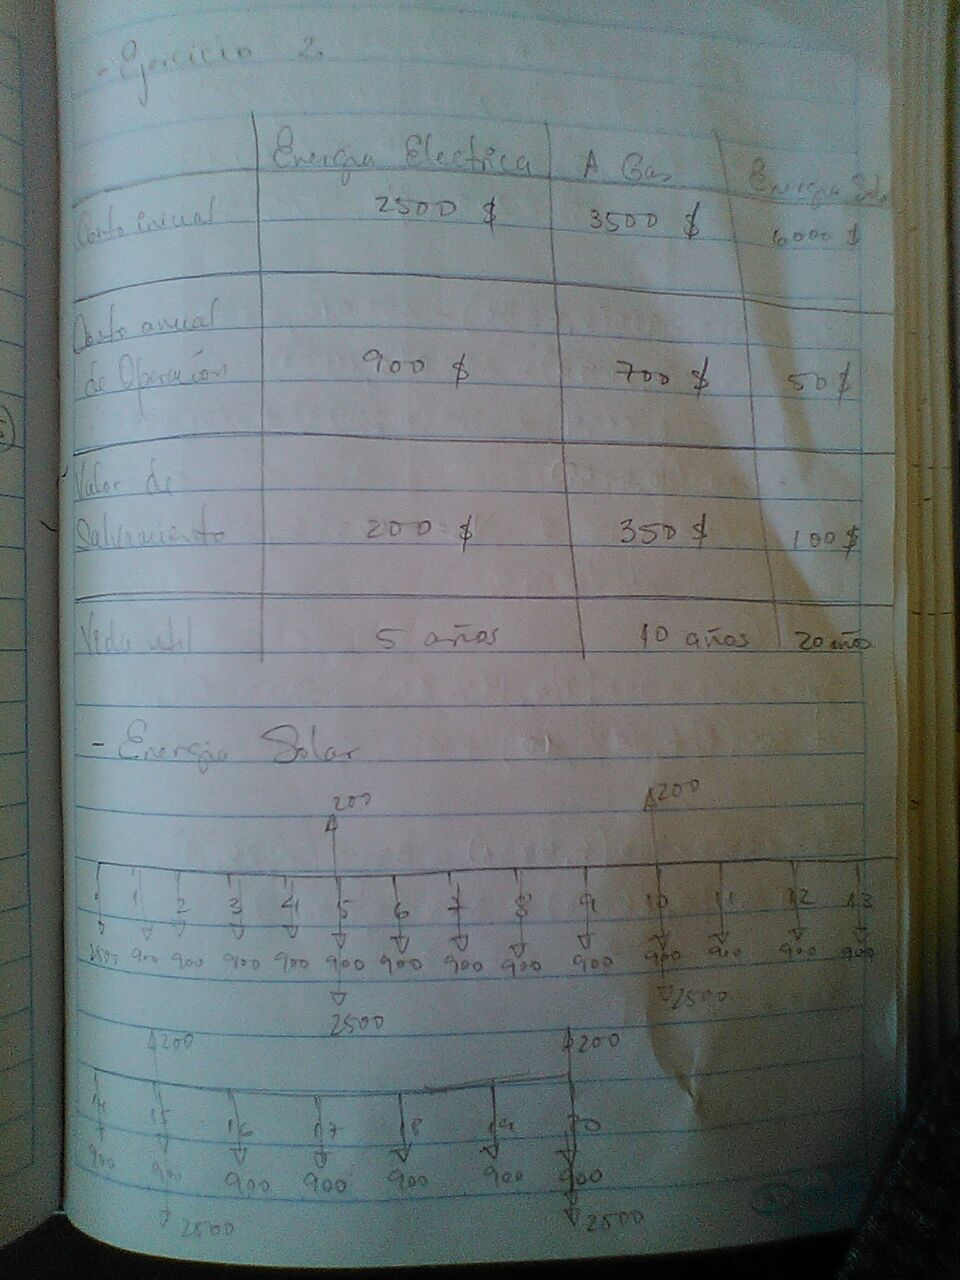 - Ejercicio 2.
Energia Electrica A Gas Energia Solar
Costo inicial 2500 $ 3500 $ 6000 $
Costo anual
de Operación 900 $ 700 $ 50 $
Valor de
Salvamiento 200 $ 350 $ 100 $
Vida util 5 años 10 años 20 años
- Energia Solar
200 200
1 2 3 4 5 6 7 8 9 10 11 12 13
2500 900 900 900 900 900 900 900 900 900 900 900 900 900
2500 2500
200 200
14 15 16 17 18 19 20
900 900 900 900 900 900 900
2500 2500